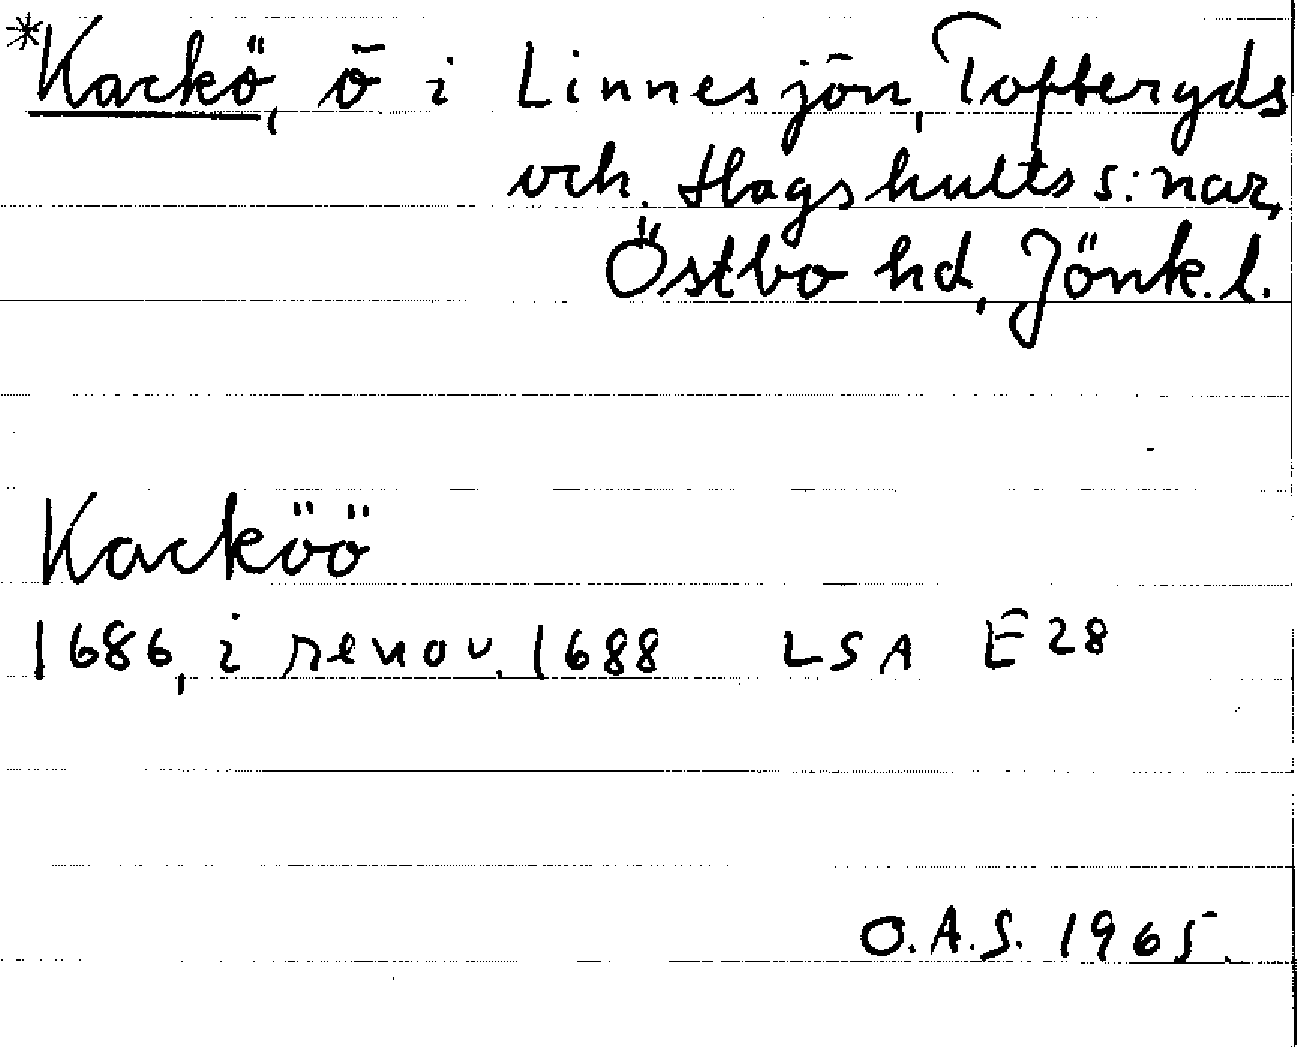 *Kackö, ö i Linnesjön, Tofteryds
och. Hagshults s:nar,
Östbo hd, Jönk. l.
Kacköö
1686, i renov. 1688 LSA E28
O.A.S. 1965.